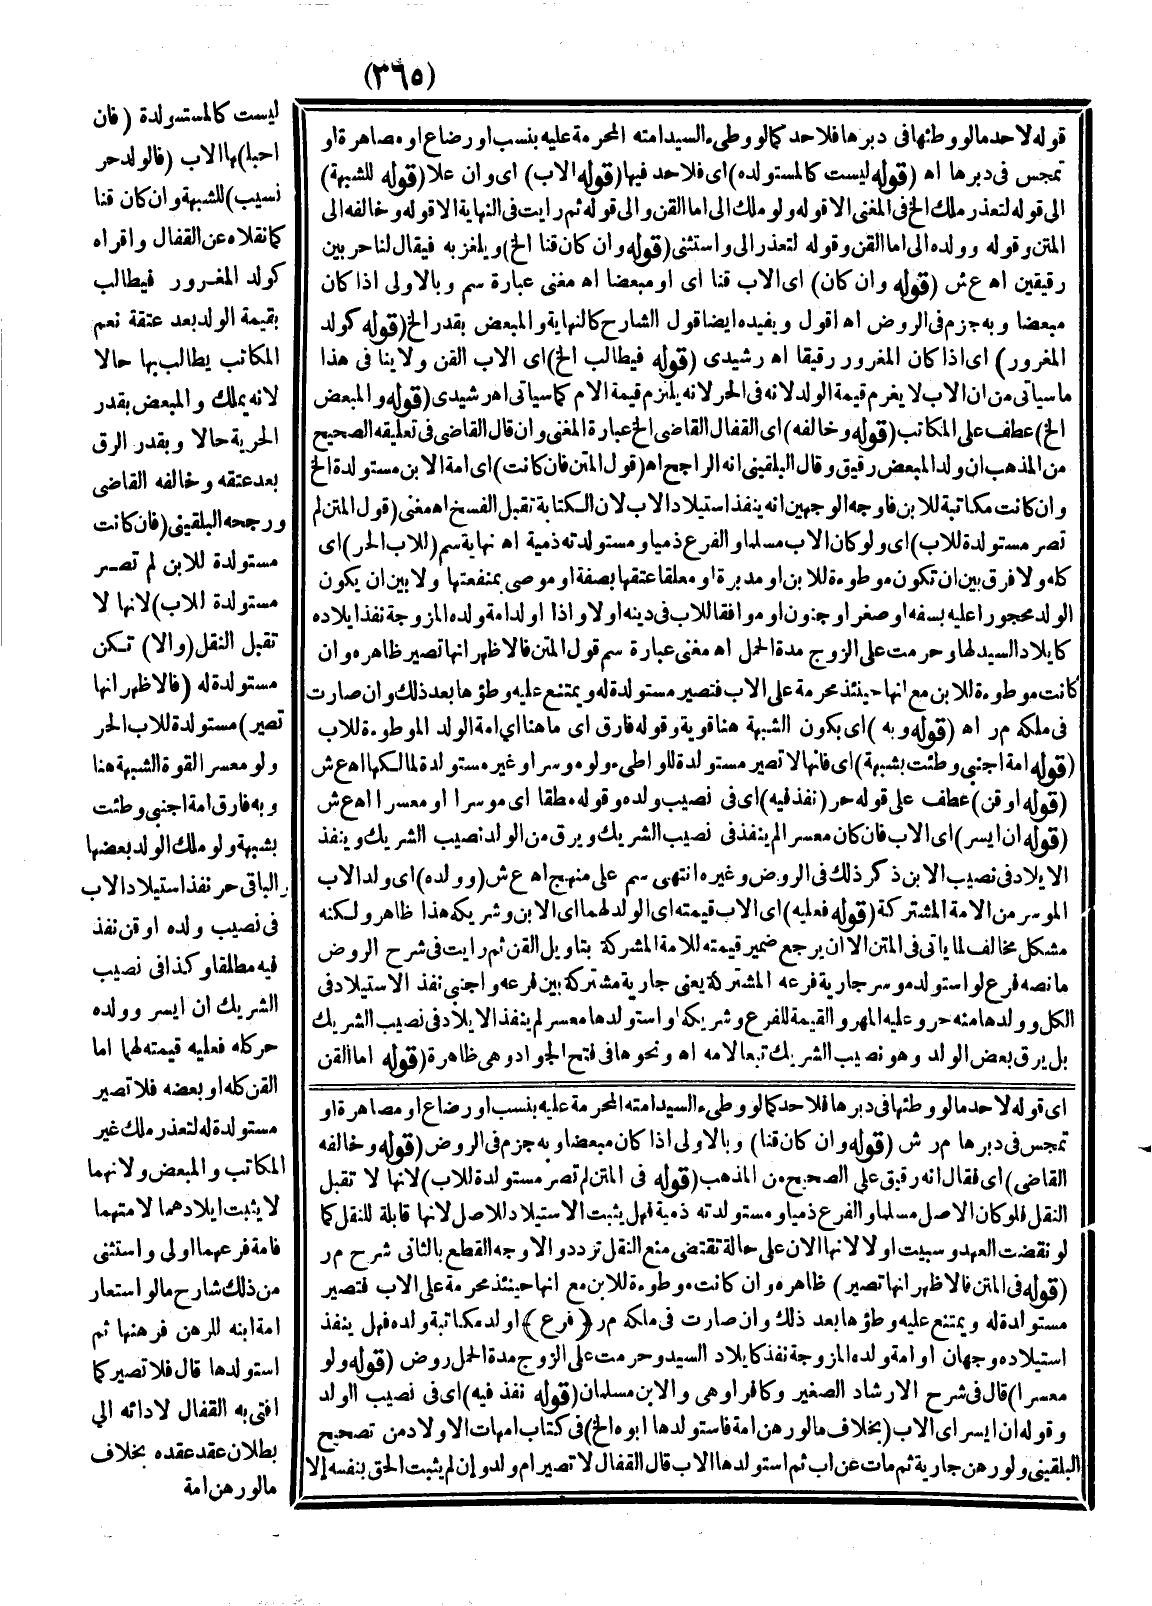 (٣٦٥)
ليست كالمستولدة (فان
احبل) بها الاب (فالولد حر
نسيب) للشبهة وان كان قنا
كما نقلاه عن القفال واقراه
كولد المغرور فيطالب
بقيمة الولد بعد عتقه نعم
المكاتب يطالب بها حالا
لانه يملك والمبعض بقدر
الحرية حالا وبقدر الرق
بعد عتقه وخالفه القاضى
ورجحه البلقينى (فان كانت
مستولدة للابن لم تصر
مستولدة للاب) لانها لا
تقبل النقل (والا) تكن
مستولدة له (فالاظهر انها
تصير) مستولدة للاب الحر
ولو معسرا لقوة الشبهة هنا
وبه فارق امة اجنبى وطئت
بشبهة ولو ملك الولد بعضها
والباقى حر نفذ استيلاد الاب
فى نصيب ولده او قن نفذ
فيه مطلقا وكذا فى نصيب
الشريك ان ايسر وولده
حر كله فعليه قيمته لهما اما
القن كله او بعضه فلا تصير
مستولدة له لتعذر ملك غير
المكاتب والمبعض ولانهما
لا يثبت ايلادهما لامتهما
فامة فرعهما اولى واستثنى
من ذلك شارح ما لو استعار
امة ابنه للرهن فرهنها ثم
استولدها قال فلا تصير كما
افتى به القفال لادائه الي
بطلان عقد عقده بخلاف
ما لو رهن امة
قوله لا حد ما لو وطئها فى دبرها فلا حد كما لو وطىء السيد امته المحرمة عليه بنسب او رضاع او مصاهرة او
تمجس فى دبرها اه (قوله ليست كالمستولده) اى فلا حد فيها (قوله الاب) اى وان علا (قوله للشبهة)
الى قوله لتعذر ملك الخ فى المغنى الا قوله ولو ملك الى اما القن والى قوله ثم رايت فى النهاية الا قوله وخالفه الى
المتن وقوله وولده الى اما القن وقوله لتعذر الى واستثنى (قوله وان كان قنا الخ) ويلغز به فيقال لنا حر بين
رقيقين اه ع ش (قوله وان كان) اى الاب قنا اى او مبعضا اه مغنى عبارة سم وبالاولى اذا كان
مبعضا وبه جزم فى الروض اه اقول ويفيده ايضا قول الشارح كالنهاية والمبعض بقدر الخ (قوله كولد
المغرور) اى اذا كان المغرور رقيقا اه رشيدى (قوله فيطالب الخ) اى الاب القن ولا ينا فى هذا
ما سياتى من ان الاب لا يغرم قيمة الولد لانه فى الحر لانه يلتزم قيمة الام كما سياتى اه رشيدى (قوله والمبعض
الخ) عطف على المكاتب (قوله وخالفه) اى القفال القاضى الخ عبارة المغنى وان قال القاضى فى تعليقه الصحيح
من المذهب ان ولد المبعض رقيق وقال البلقينى انه الراجح اه (قول المتن فان كانت) اى امة الابن مستولدة الخ
وان كانت مكاتبة للابن فاوجه الوجهين انه ينفذ استيلاد الاب لان الكتابة تقبل الفسخ اه مغنى (قول المتن لم
تصر مستولدة للاب) اى ولو كان الاب مسلما والفرع ذميا ومستولدته ذمية اه نهاية سم (للاب الحر) اى
كله ولا فرق بين ان تكون موطوءة للابن او مدبرة او معلقا عتقها بصفة او موصى بمنفعتها ولا بين ان يكون
الولد محجورا عليه بسفه او صغر او جنون او موافقا للاب فى دينه اولا واذا اولد امة ولده المزوجة نفذ ايلاده
كايلاد السيد لها وحرمت على الزوج مدة الحمل اه مغنى عبارة سم قول المتن فالاظهر انها تصير ظاهره وان
كانت موطوءة للابن مع انها حينئذ محرمة على الاب فتصير مستولدة له ويمتنع عليه وطؤها بعد ذلك وان صارت
فى ملكه م ر اه (قوله وبه) اى بكون الشبهة هنا قوية وقوله فارق اى ما هنا اي امة الولد الموطوءة للاب
(قوله امة اجنبى وطئت بشبهة) اى فانها لا تصير مستولدة للواطىء ولو موسرا وغير مستولدة لمالكها اه ع ش
(قوله او قن) عطف على قوله حر (نفذ فيه) اى فى نصيب ولده وقوله مطلقا اى موسرا او معسرا اه ع ش
(قوله ان ايسر) اى الاب فان كان معسرا لم ينفذ فى نصيب الشريك ويرق من الولد نصيب الشريك وينفذ
الايلاد فى نصيب الابن ذكر ذلك فى الروض وغيره انتهى سم على منهج اه ع ش (وولده) اى ولد الاب
الموسر من الامة المشتركة (قوله فعليه) اى الاب قيمته اى الولد لهما اى الابن وشريكه هذا ظاهر ولكنه
مشكل مخالف لما ياتى فى المتن الا ان يرجع ضمير قيمته للامة المشركة بتاويل القن ثم رايت فى شرح الروض
ما نصه فرع لو استولد موسر جارية فرعه المشتركة يعنى جارية مشتركة بين فرعه واجنبى نفذ الاستيلاد فى
الكل وولدها منه حر وعليه المهر والقيمة للفرع وشريكه او استولدها معسر لم ينفذ الايلاد فى نصيب الشريك
بل يرق بعض الولد وهو نصيب الشريك تبعا لامه اه ونحوها فى فتح الجواد وهى ظاهرة (قوله اما القن
اى قوله لا حد ما لو وطئها فى دبرها فلا حد كما لو وطىء السيد امته المحرمة عليه بنسب او رضاع او مصاهرة او
تمجس فى دبرها م ر ش (قوله وان كان قنا) وبالاولى اذا كان مبعضا وبه جزم فى الروض (قوله وخالفه
القاضى) اى فقال انه رقيق على الصحيح من المذهب (قوله فى المتن لم تصر مستولدة للاب) لانها لا تقبل
النقل فلو كان الاصل مسلما والفرع ذميا ومستولدته ذمية فهل يثبت الاستيلاد للاصل لانها قابلة للنقل كما
لو نقضت العهد وسبيت اولا لانها الان على حالة تقتضى منع النقل تردد والاوجه القطع بالثانى شرح م ر
(قوله فى المتن فالاظهر انها تصير) ظاهره وان كانت موطوءة للابن مع انها حينئذ محرمة على الاب فتصير
مستولدة له ويمتنع عليه وطؤها بعد ذلك وان صارت فى ملكه م ر (فرع) اولد مكاتبة ولده فهل ينفذ
استيلاده وجهان او امة ولده المزوجة نفذ كايلاد السيد وحرمت على الزوج مدة الحمل روض (قوله ولو
معسرا) قال فى شرح الارشاد الصغير وكافرا وهى والابن مسلمان (قوله نفذ فيه) اى فى نصيب الولد
وقوله ان ايسر اى الاب (بخلاف ما لو رهن امة فاستولدها ابوه الخ) فى كتاب امهات الاولاد من تصحيح
البلقينى ولو رهن جارية ثم مات عن اب ثم استولدها الاب قال القفال لا تصير ام ولد وإن لم يثبت الحق بنفسه إلا